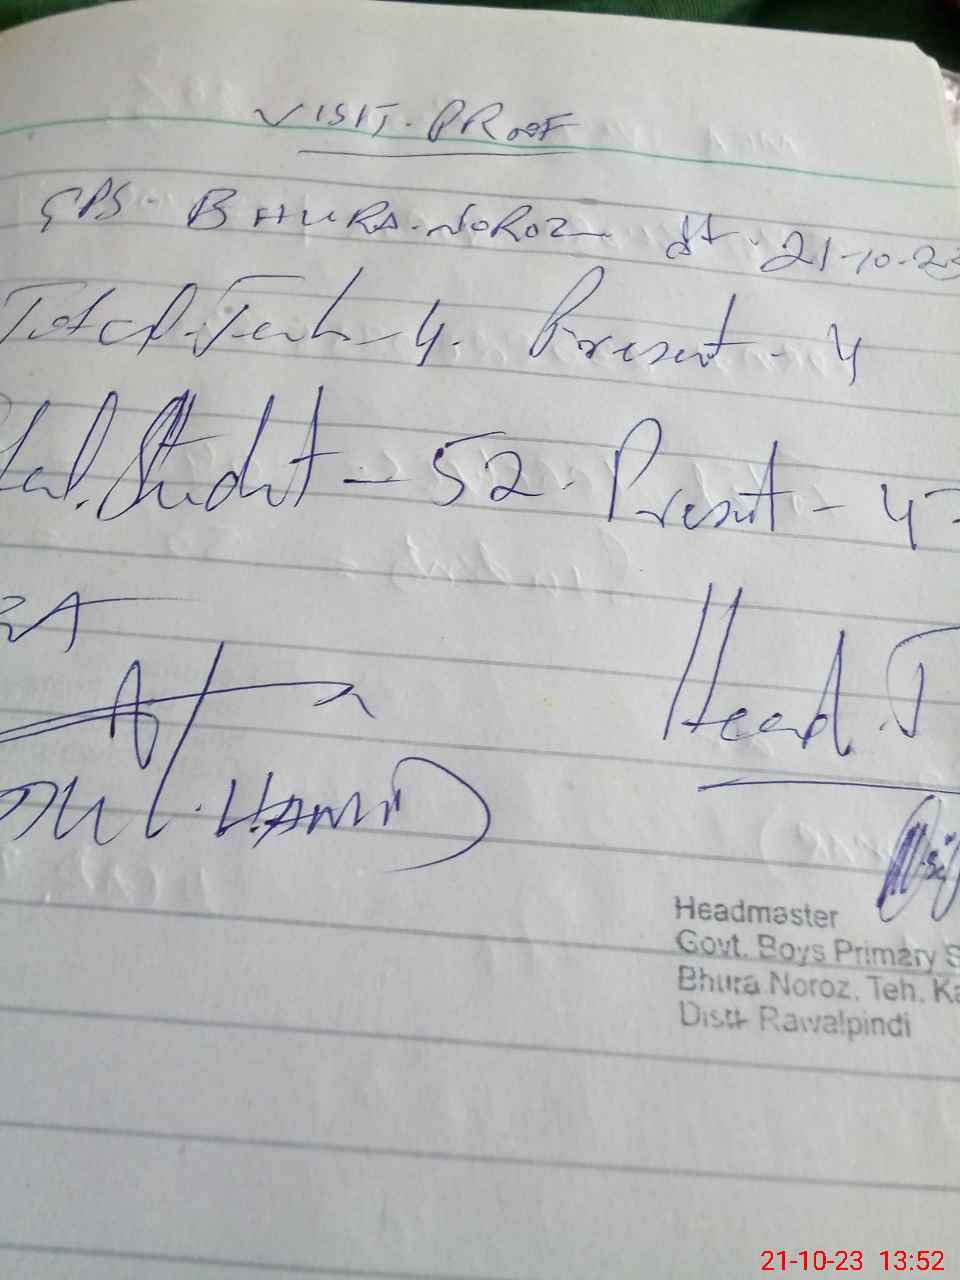 VISIT. PROOF
GPS - BHURA. NOROZ dt. 21-10-23
Total. Teach - 4. Present - 4
tal. Studnt - 52. Present - 47
HAMID
Head. T
Headmaster
Govt. Boys Primary S
Bhura Noroz, Teh. Ka
Distt Rawalpindi
21-10-23 13:52